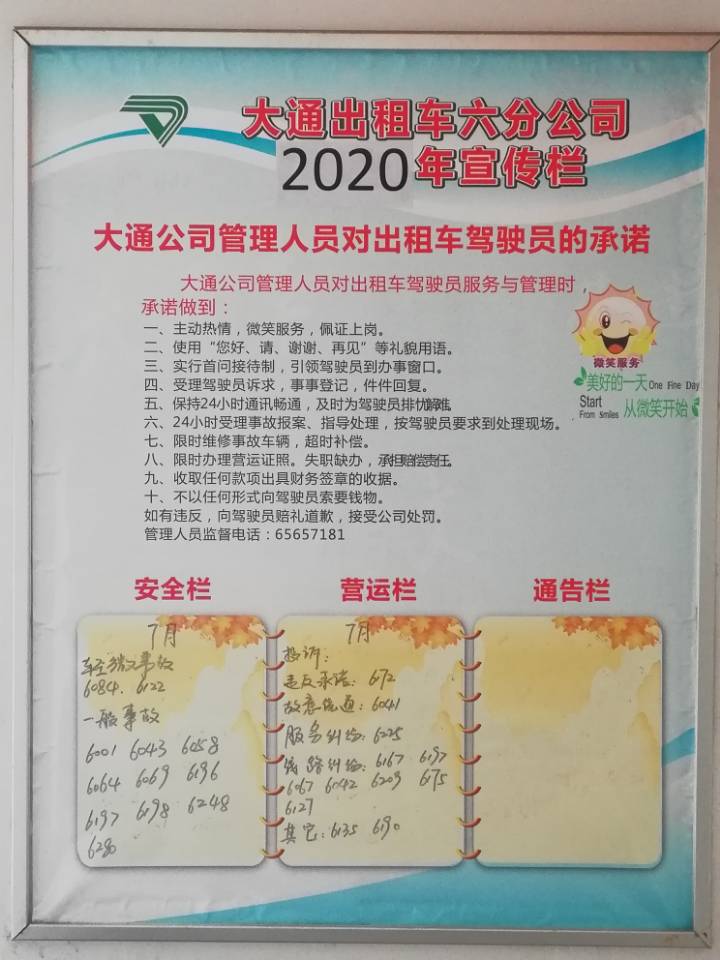 大通出租车六分公司
2020年宣传栏
大通公司管理人员对出租车驾驶员的承诺
大通公司管理人员对出租车驾驶员服务与管理时，
承诺做到：
一、主动热情，微笑服务，佩证上岗。
二、使用“您好、请、谢谢、再见”等礼貌用语。
三、实行首问接待制，引领驾驶员到办事窗口。
四、受理驾驶员诉求，事事登记，件件回复。
五、保持24小时通讯畅通，及时为驾驶员排忧解难。
六、24小时受理事故报案、指导处理，按驾驶员要求到处理现场。
七、限时维修事故车辆，超时补偿。
八、限时办理营运证照。失职缺办，承担赔偿责任。
九、收取任何款项出具财务签章的收据。
十、不以任何形式向驾驶员索要钱物。
如有违反，向驾驶员赔礼道歉，接受公司处罚。
管理人员监督电话：65657181
微笑服务
美好的一天 One Fine Day
Start
From Smiles 从微笑开始
安全栏
7月
轻微事故
6084、6122
一般事故
6001 6043 6058
6064 6069 6196
6197 6198 6248
6280
营运栏
7月
投诉：
违反承诺：6172
故意绕道：6041
服务纠纷：6025
线路纠纷：6167 6197
6067 6042 6209 6175
6127
其它：6135 6190
通告栏